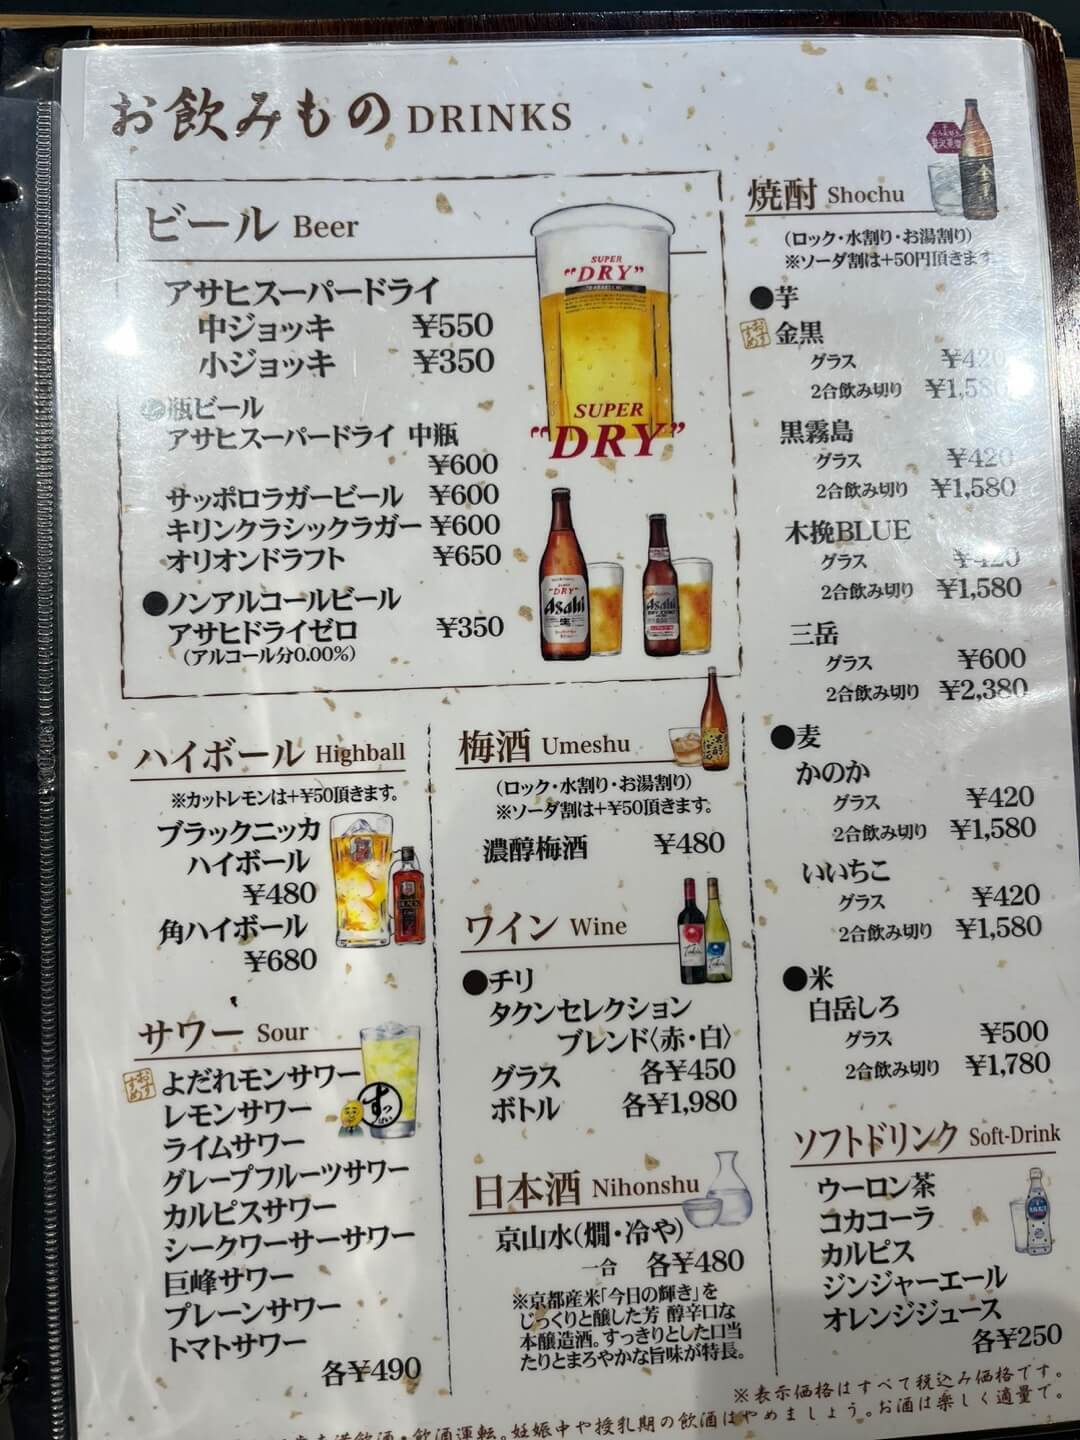 お飲みもの DRINKS
ビール Beer
アサヒスーパードライ
中ジョッキ ¥550
小ジョッキ ¥350
瓶ビール
アサヒスーパードライ 中瓶
¥600
サッポロラガービール ¥600
キリンクラシックラガー ¥600
オリオンドラフト ¥650
●ノンアルコールビール
アサヒドライゼロ ¥350
(アルコール分0.00%)
SUPER
"DRY"
SUPER
"DRY"
"DRY"
Asahi
生
Asahi
ハイボール Highball
※カットレモンは+¥50頂きます。
ブラックニッカ
ハイボール
¥480
角ハイボール
¥680
サワー Sour
おすすめ
よだれモンサワー
レモンサワー
ライムサワー
グレープフルーツサワー
カルピスサワー
シークワーサーサワー
巨峰サワー
プレーンサワー
トマトサワー
各¥490
すっぱい
梅酒 Umeshu
(ロック・水割り・お湯割り)
※ソーダ割は+¥50頂きます。
濃醇梅酒 ¥480
ワイン Wine
●チリ
タクンセレクション
ブレンド〈赤・白〉
グラス 各¥450
ボトル 各¥1,980
日本酒 Nihonshu
京山水(燗・冷や)
一合 各¥480
※京都産米「今日の輝き」を
じっくりと醸した芳 醇辛口な
本醸造酒。すっきりとした口当
たりとまろやかな旨味が特長。
焼酎 Shochu
(ロック・水割り・お湯割り)
※ソーダ割は+50円頂きます。
●芋
おすすめ
金黒
グラス ¥420
2合飲み切り ¥1,580
黒霧島
グラス ¥420
2合飲み切り ¥1,580
木挽BLUE
グラス ¥420
2合飲み切り ¥1,580
三岳
グラス ¥600
2合飲み切り ¥2,380
●麦
かのか
グラス ¥420
2合飲み切り ¥1,580
いいちこ
グラス ¥420
2合飲み切り ¥1,580
●米
白岳しろ
グラス ¥500
2合飲み切り ¥1,780
ソフトドリンク Soft-Drink
ウーロン茶
コカコーラ
カルピス
ジンジャーエール
オレンジジュース
各¥250
※表示価格はすべて税込み価格です。
飲酒運転。妊娠中や授乳期の飲酒はやめましょう。お酒は楽しく適量で。